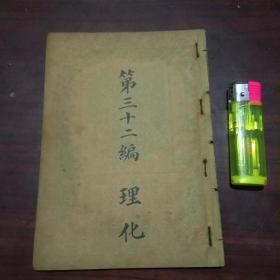 第三十二編 理化